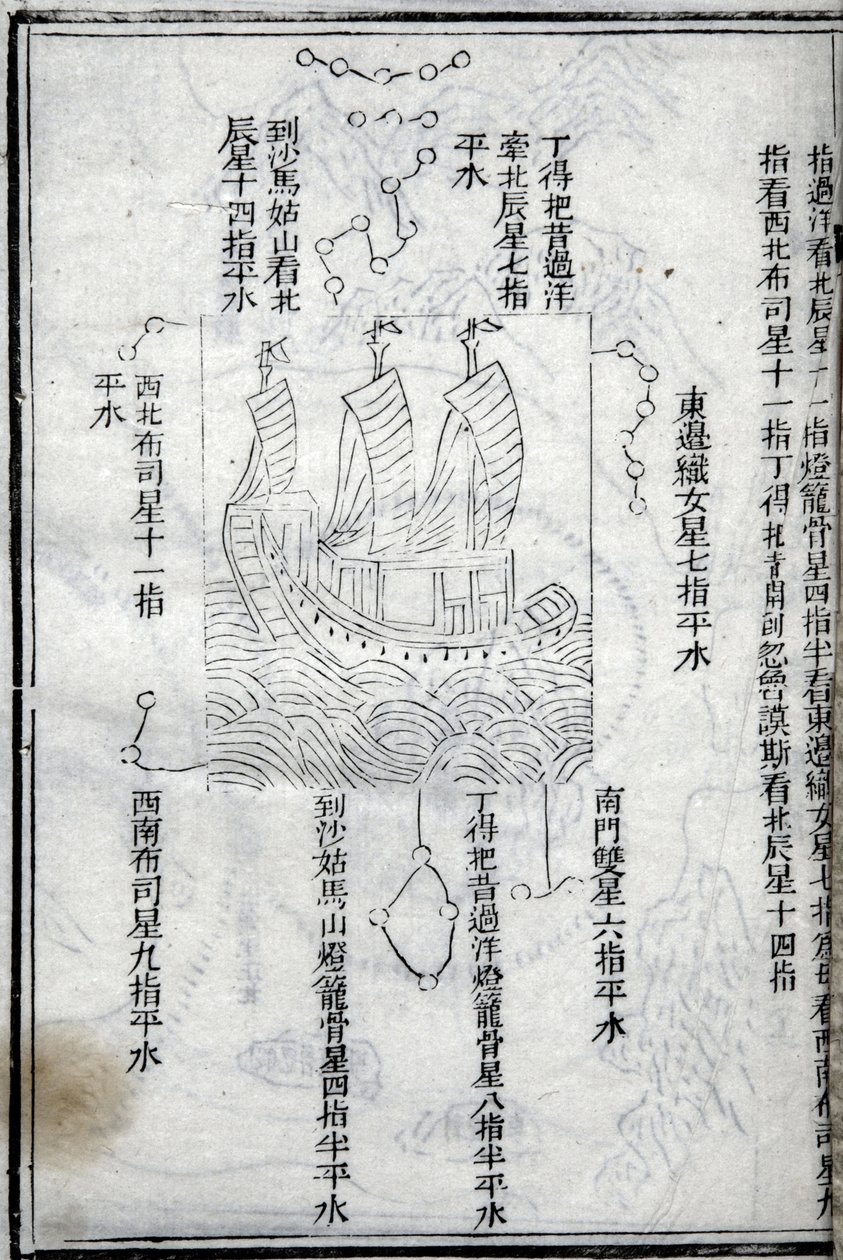 指過洋看北辰星十一指燈籠骨星四指半看東邊織女星七指爲母看西南布司星九
指看西北布司星十一指丁得把昔開到忽魯謨斯看北辰星十四指
東邊織女星七指平水
丁得把昔過洋
牽北辰星七指
平水
到沙馬姑山看北
辰星十四指平水
西北布司星十一指
平水
南門雙星六指平水
丁得把昔過洋燈籠骨星八指半平水
到沙姑馬山燈籠骨星四指半平水
西南布司星九指平水